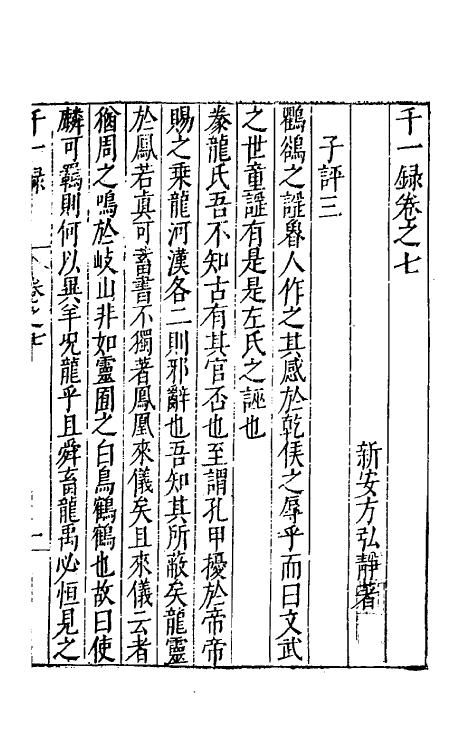 千一録卷之七
新安方弘靜著
子評三
鸜鵒之謡魯人作之其感於乾侯之辱乎而曰文武
之世童謡有是是左氏之誣也
豢龍氏吾不知古有其官否也至謂孔甲擾於帝帝
賜之乘龍河漢各二則邪辭也吾知其所蔽矣龍靈
於鳳若真可畜書不獨著鳳凰來儀矣且來儀云者
猶周之鳴於岐山非如靈囿之白鳥鶴鶴也故曰使
麟可羈則何以異羊况龍乎且舜畜龍禹必恒見之
千一録 卷之七 一